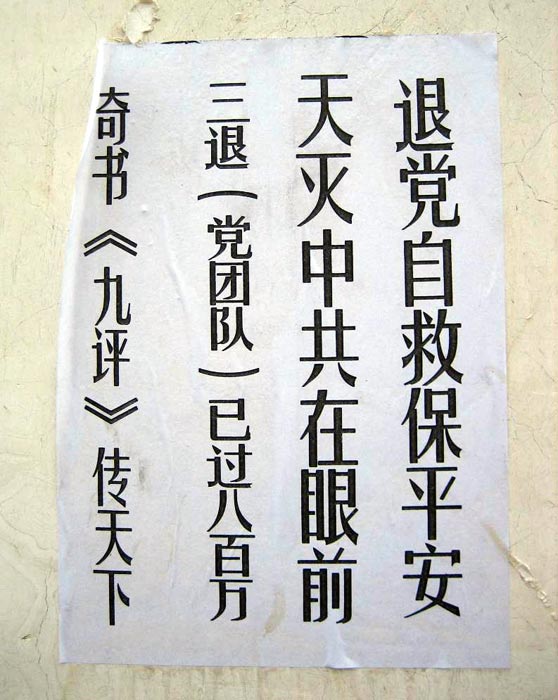 退党自救保平安
天灭中共在眼前
三退（党团队）已过八百万
奇书《九评》传天下